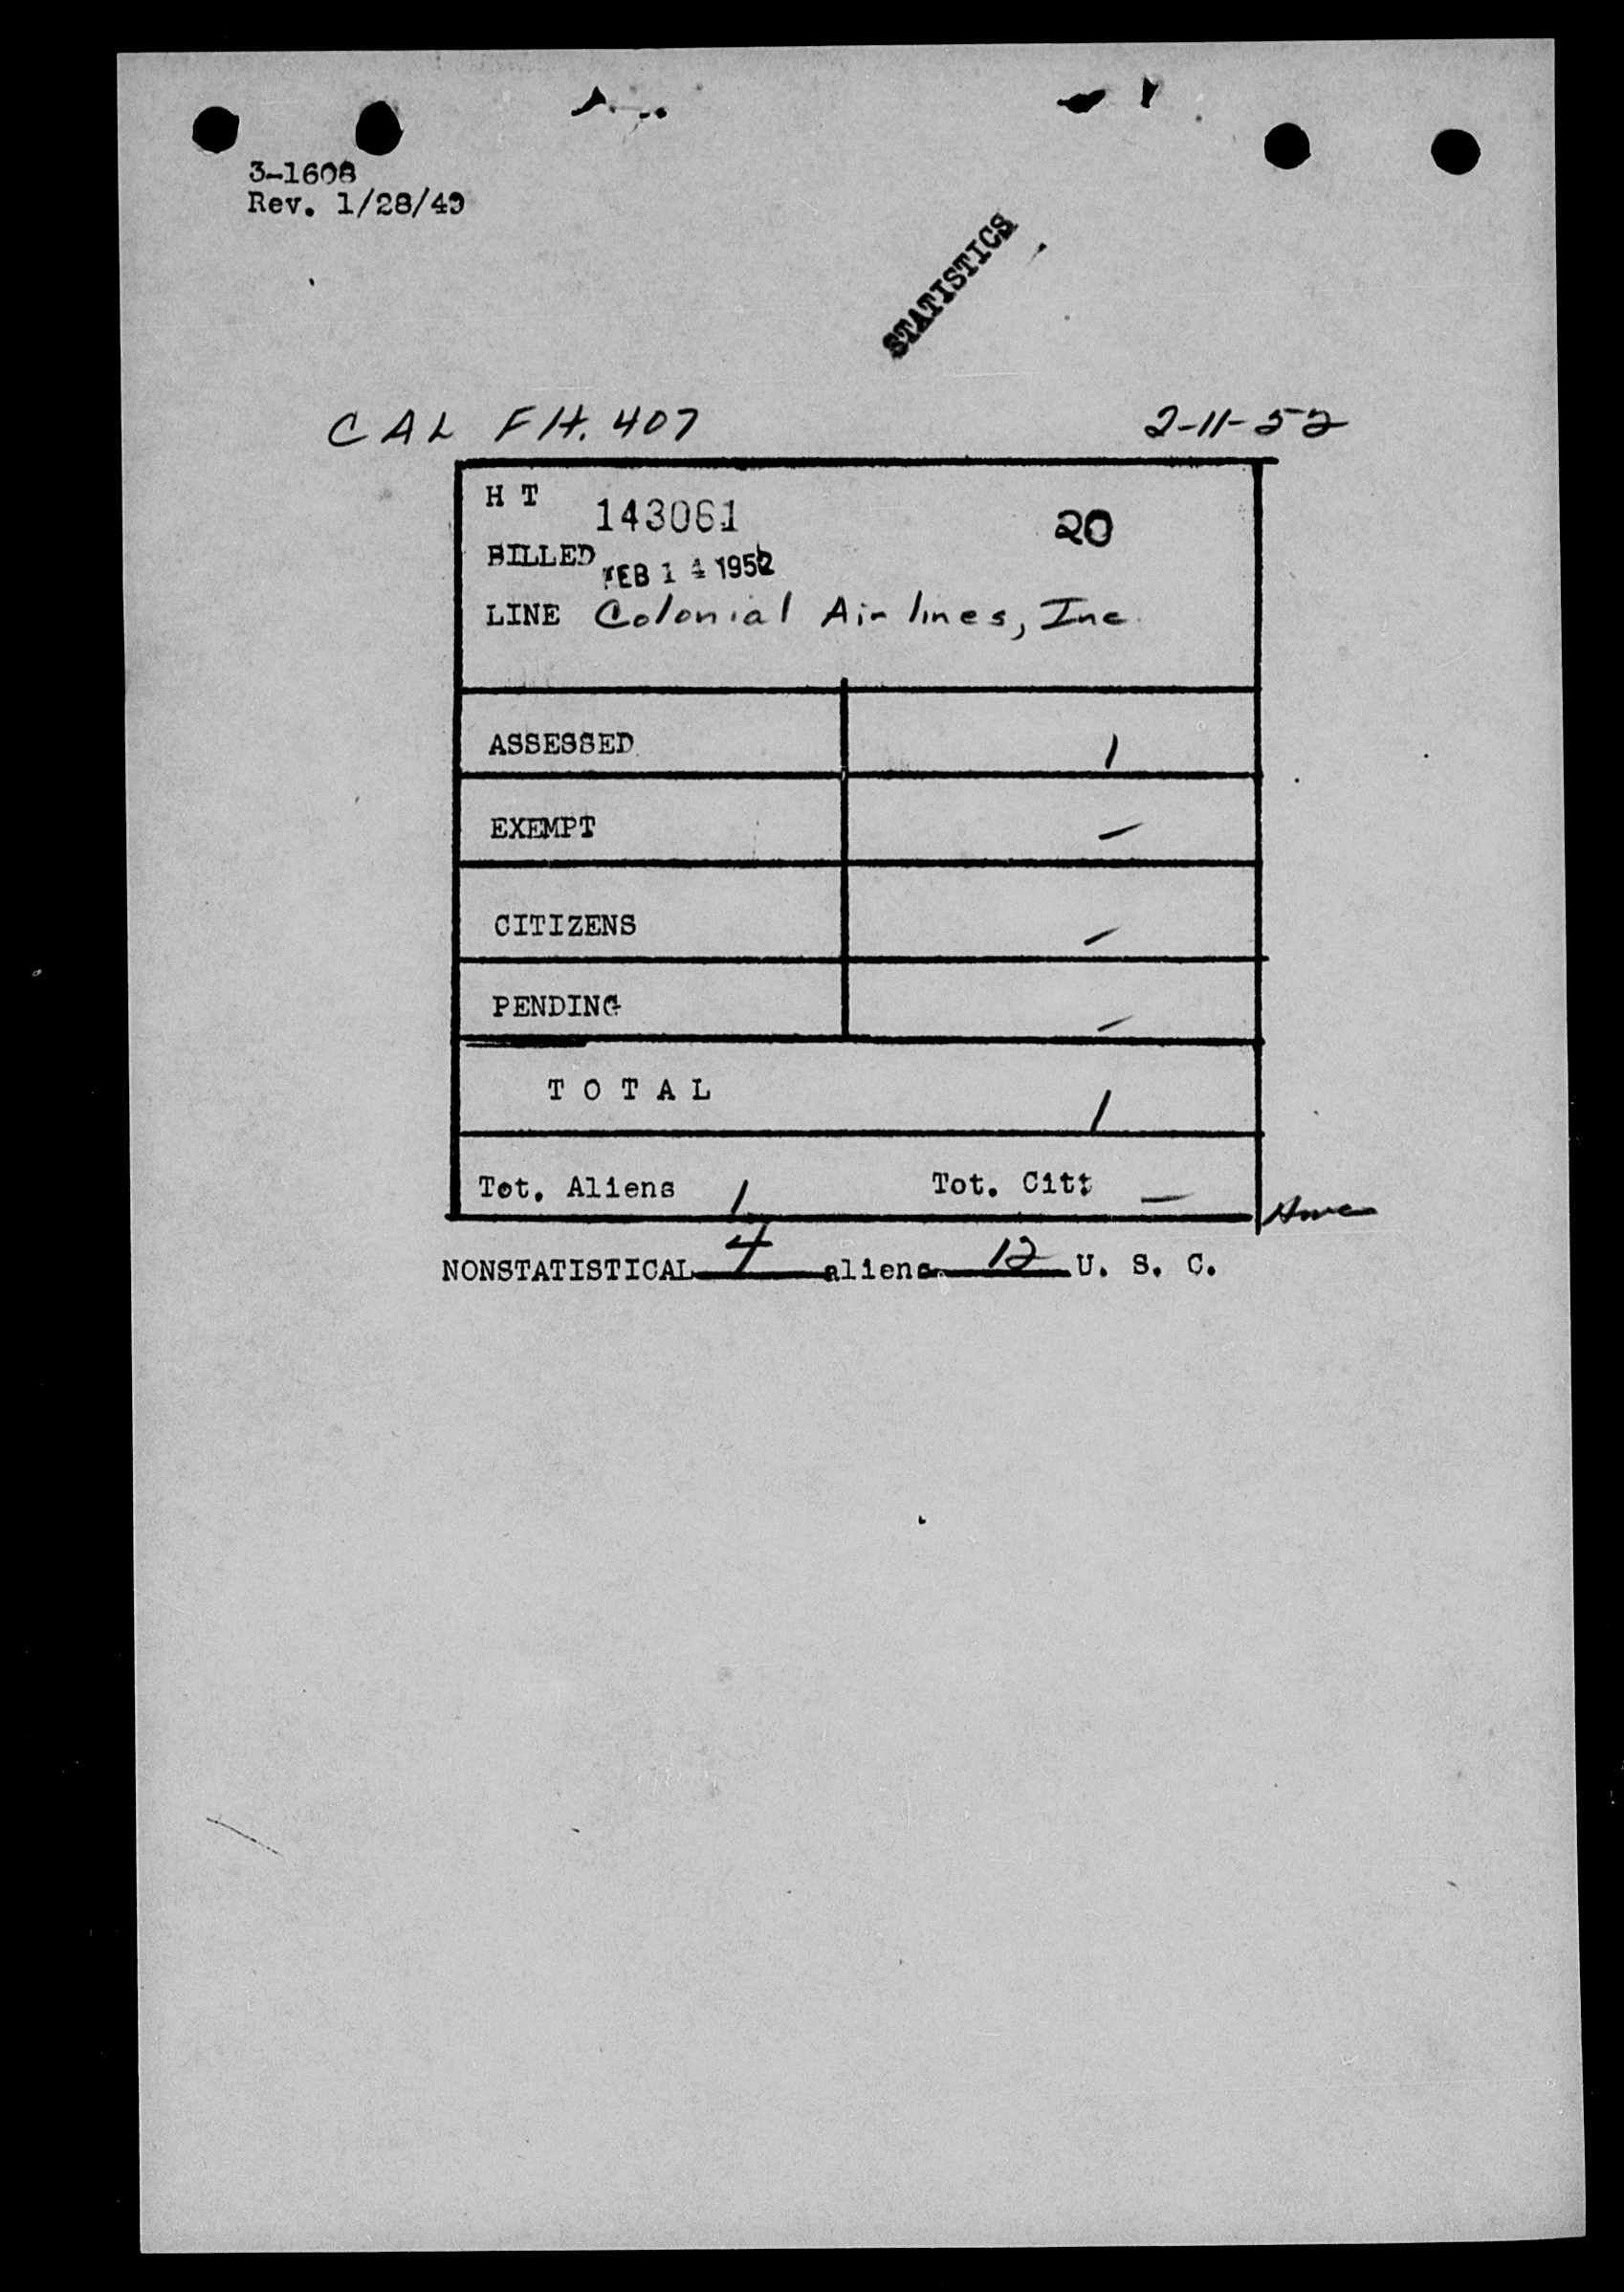 3-1608
Rev. 1/28/49
STATISTICS
CAL Flt. 407 2-11-52
H T 143061 20
BILLED FEB 14 1952
LINE Colonial Airlines, Inc.
ASSESSED 1
EXEMPT –
CITIZENS –
PENDING –
T O T A L 1
Tot. Aliens 1 Tot. Citz –
NONSTATISTICAL 4 aliens 12 U. S. C.